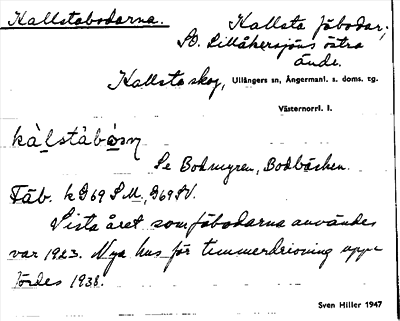 Kallstabodarna.
Kallsta fäbodar;
SO. Lillåkersjöns östra
ände.
Kallsta skog, Ullångers sn, Ångermanl. s. doms. tg.
Västernorrl. l.
kàlstàbòsn
Se Bodmyren, Bodbäcken.
Fäb. k D69 SM, D69 SV.
Sista året som fäbodarna användes
var 1923. Nya hus för timmerdrivning uppe
fördes 1938.
Sven Hiller 1947